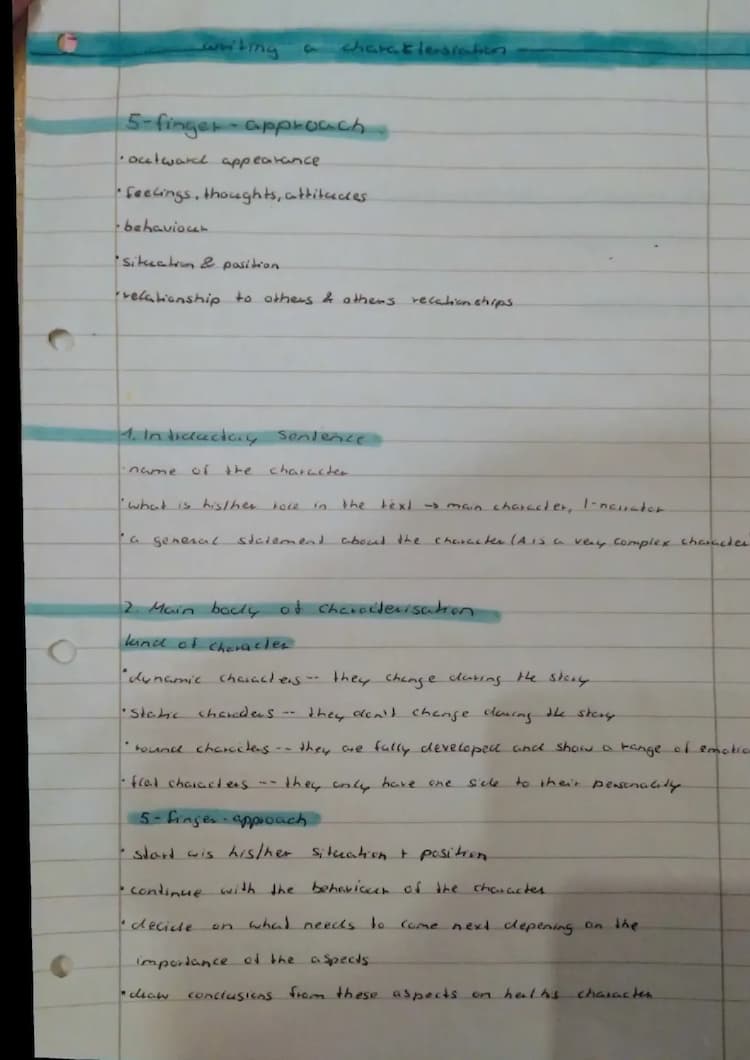 writing a charakterisation
5-finger-approach
· outward appearance
· feelings, thoughts, attitudes
· behaviour
· situation & position
· relationship to others & others relationships
1. Introductory sentence
· name of the character
· what is his/her role in the text → main character, I-narrator
· a general statement about the character (A is a very complex character
2. Main body of characterisation
kind of character
· dynamic characters -- they change during the story
· static characters -- they don't change during the story
· round characters -- they are fully developed and show a range of emotio
· flat characters -- they only have one side to their personality
5-finger-approach
· start wis his/her situation + position
· continue with the behaviour of the character
· decide on what needs to come next depening on the
importance of the aspects
· draw conclusions from these aspects on character